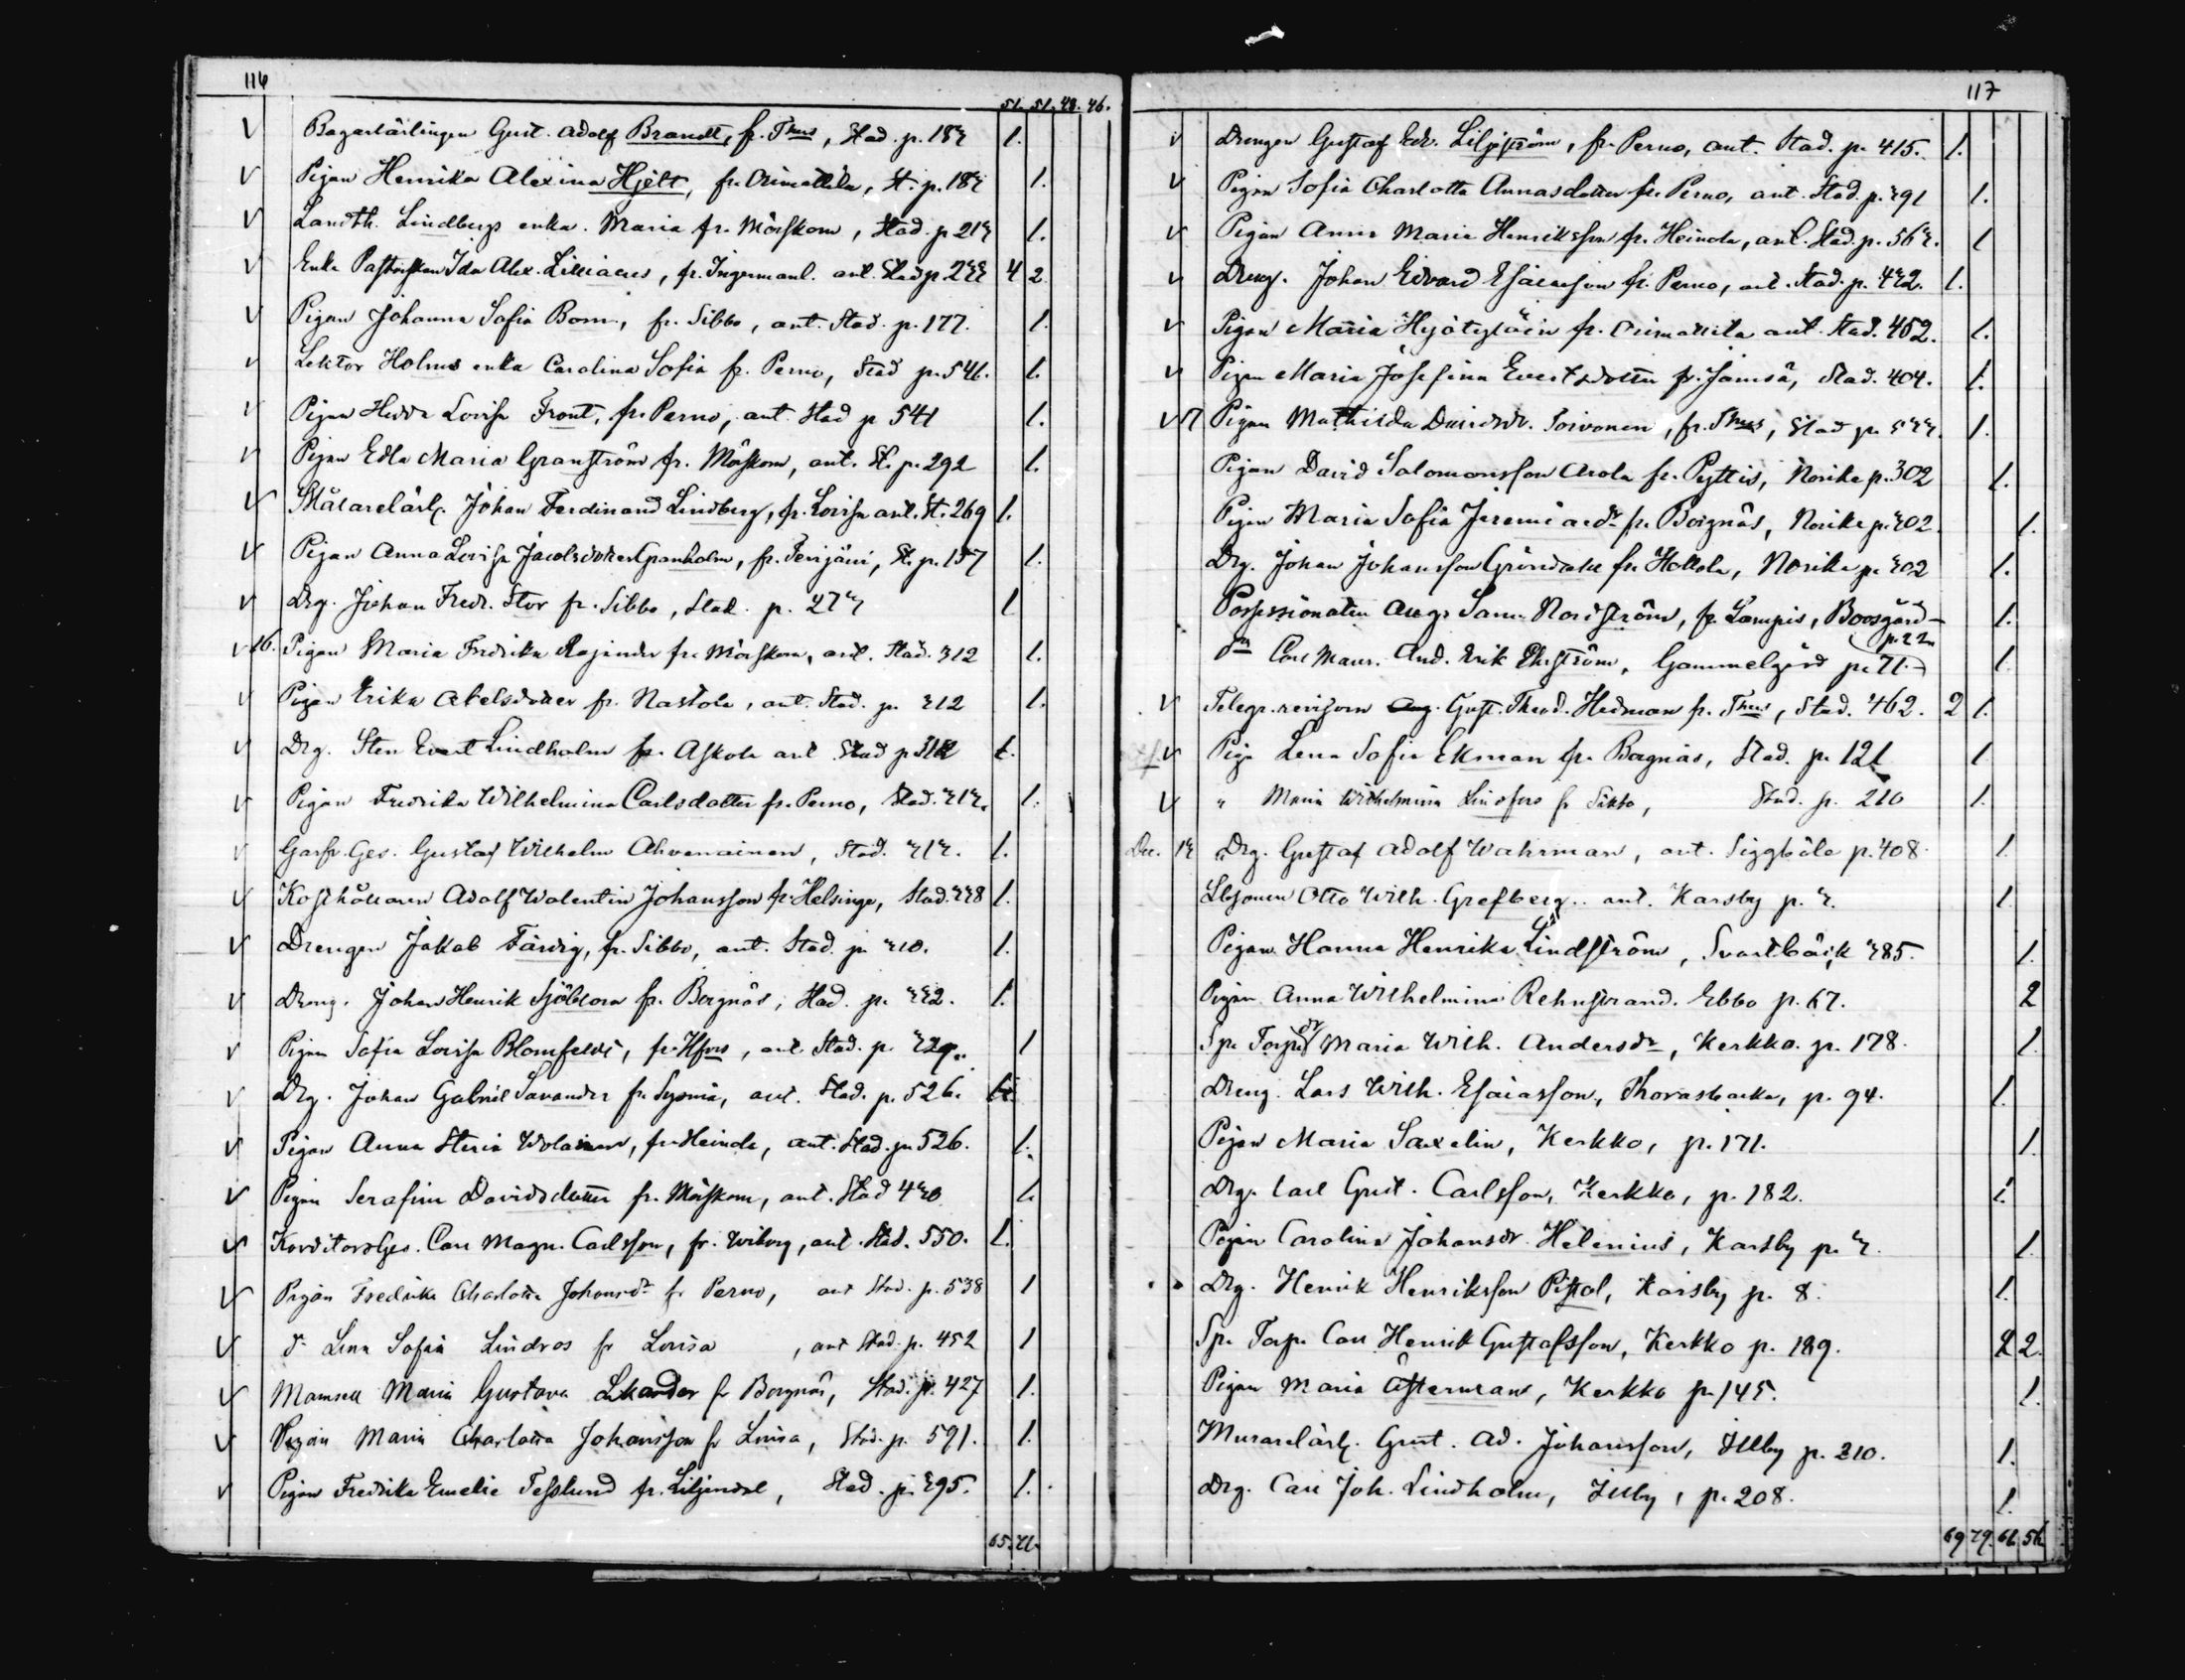 116
51. 51. 48. 46.
V Bagarlärlingen Gust. Adolf Brandt, fr. Thus, Stad. p. 183 1.
V Pigan Henrika Alexina Hjelt, fr. Orimattila, St. p. 183 1.
V Landth. Lindbergs enka Maria fr. Mörskom, Stad. p. 213 1.
V Enka Pastorskan Ida Alex. Lilliacus, fr. Ingermanl. ant. Stad p. 233 4 2
V Pigan Johanna Sofia Bom, fr. Sibbo, ant. Stad. p. 177. 1.
V Lektor Holms enka Carolina Sofia fr. Perno, Stad p. 546. 1.
V Pigan Hedda Lovisa Front, fr. Perno, ant. Stad p 541 1.
V Pigan Edla Maria Granström fr. Mörskom, ant. St. p. 292 1.
V Målarelärl. Johan Ferdinand Lindberg, fr. Lovisa ant. St. 269 1.
V Pigan Anna Lovisa Jacobsdotter Granholm, fr. Tervjärvi, St. p. 157 1.
V Drg. Johan Fredr. Stor fr. Sibbo, Stad. p. 273 1
V 16. Pigan Maria Fredrika Rajander fr. Mörskom, ant. Stad. 312 1.
V Pigan Erika Abelsdotter fr. Nastola, ant. Stad. p. 312 1.
V Drg. Sten Evert Lindholm fr. Askola ant Stad p 312 1.
V Pigan Fredrika Wilhelmina Carlsdotter fr. Perno, Stad. 313. 1.
V Garfv. Ges. Gustaf Wilhelm Ahvenainen, Stad. 313. 1.
V Kosthållaren Adolf Walentin Johansson fr. Helsinge, Stad. 338 1.
V Drengen Jakob Färdig, fr. Sibbo, ant. Stad. p. 310. 1.
V Dreng. Johan Henrik Sjöblom fr. Borgnäs, Stad. p. 332. 1.
V Pigan Sofia Lovisa Blomfeldt, fr. Hfors, ant. Stad. p. 329. 1
V Drg. Johan Gabriel Savander fr. Sysmä, ant. Stad. p. 526. 1.
V Pigan Anna Stina Wolainen, fr. Heinola, ant. Stad. p. 526. 1.
V Pigan Serafina Davidsdotter fr. Mörskom, ant. Stad 430 1.
V KonditorsGes. Carl Magn. Carlsson, fr. Wiborg, ant. Stad. 550. 1.
V Pigan Fredrika Charlotta Johansdr fr Perno, ant Stad. p. 538 1
V do Lena Sofia Lindros fr Lovisa, ant Stad. p. 452 1
V Mamsell Maria Gustava Lkander fr Borgnäs, Stad. p. 427 1.
V Pigan Maria Charlotta Johansson fr Lovisa, Stad. p. 591. 1.
V Pigan Fredrika Emelie Tesslund fr. Liljendal, Stad. p. 395. 1.
65. 71.
117
V Drengen Gustaf Edv. Liljeström, fr. Perno, ant. Stad. p. 415. 1.
V Pigan Sofia Charlotta Annasdotter fr. Perno, ant. Stad. p. 391 1.
V Pigan Anna Maria Henriksson fr. Heinola, ant. Stad. p. 563. 1
V Dreng. Johan Edvard Esaiasson fr. Perno, ant. Stad. p. 432. 1.
V Pigan Maria Hyötyläin fr. Orimattila ant. Stad. 452. 1.
V Pigan Maria Josefina Evertsdotter fr. Jämsä, Stad. 404. 1.
V 17 Pigan Mathilda Davidsdr. Toivonen, fr. Thus, Stad p. 533. 1.
Pigan David Salomonsson Arola fr. Pyttis, Norike p. 302 1.
Pigan Maria Sofia Jeremiaedr fr. Borgnäs, Norike p. 302. 1.
Drg. Johan Johansson Gröndahl fr. Hollola, Norike p. 302 1.
Possessionaten Aug. Sam. Nordström, fr. Lampis, Boosgård p. 22 1.
do Carl Maur. And. Erik Ekström, Gammelgård p. 71. 1.
V Telegr. revisorn Gust. Theod. Hedman fr. Thus, Stad. 462. 2 1.
V Piga Lena Sofia Ekman fr. Borgnäs, Stad. p. 121 1
V " Maria Wilhelmina Lindfors fr Sibbo, Stad. p. 210 1.
Dec. 13 Drg. Gustaf Adolf Wahrman, ant. Siggböle p. 408. 1.
Otto Wilh. Grefberg ant. Karsby p. 3. 1.
Pigan Hanna Henrika Lindström, Svartbäck 385. 1.
Pigan Anna Wilhelmina Rehnstrand. Ebbo p. 67. 2
Sp. Torpdr Maria Wilh. Andersdr, Kerkko. p. 178. 1.
Dreng. Lars Wilh. Esaiasson, Thorasbacka, p. 94. 1.
Pigan Maria Saxelin, Kerkko, p. 171. 1.
Drg. Carl Gust. Carlsson, Kerkko, p. 182. 1.
Pigan Carolina Johansdr Helenius, Karsby p. 3. 1.
Drg. Henrik Henriksson Pistol, Karsby p. 8. 1.
Sp. Torp. Carl Henrik Gustafsson, Kerkko p. 189. 2 2.
Pigan Maria Åsterman, Kerkko p. 145. 1.
Murarelärl. Gust. Ad. Johansson, Illby p. 210. 1.
Drg. Carl Joh. Lindholm, Illby, p. 208. 1.
69 79. 61 56